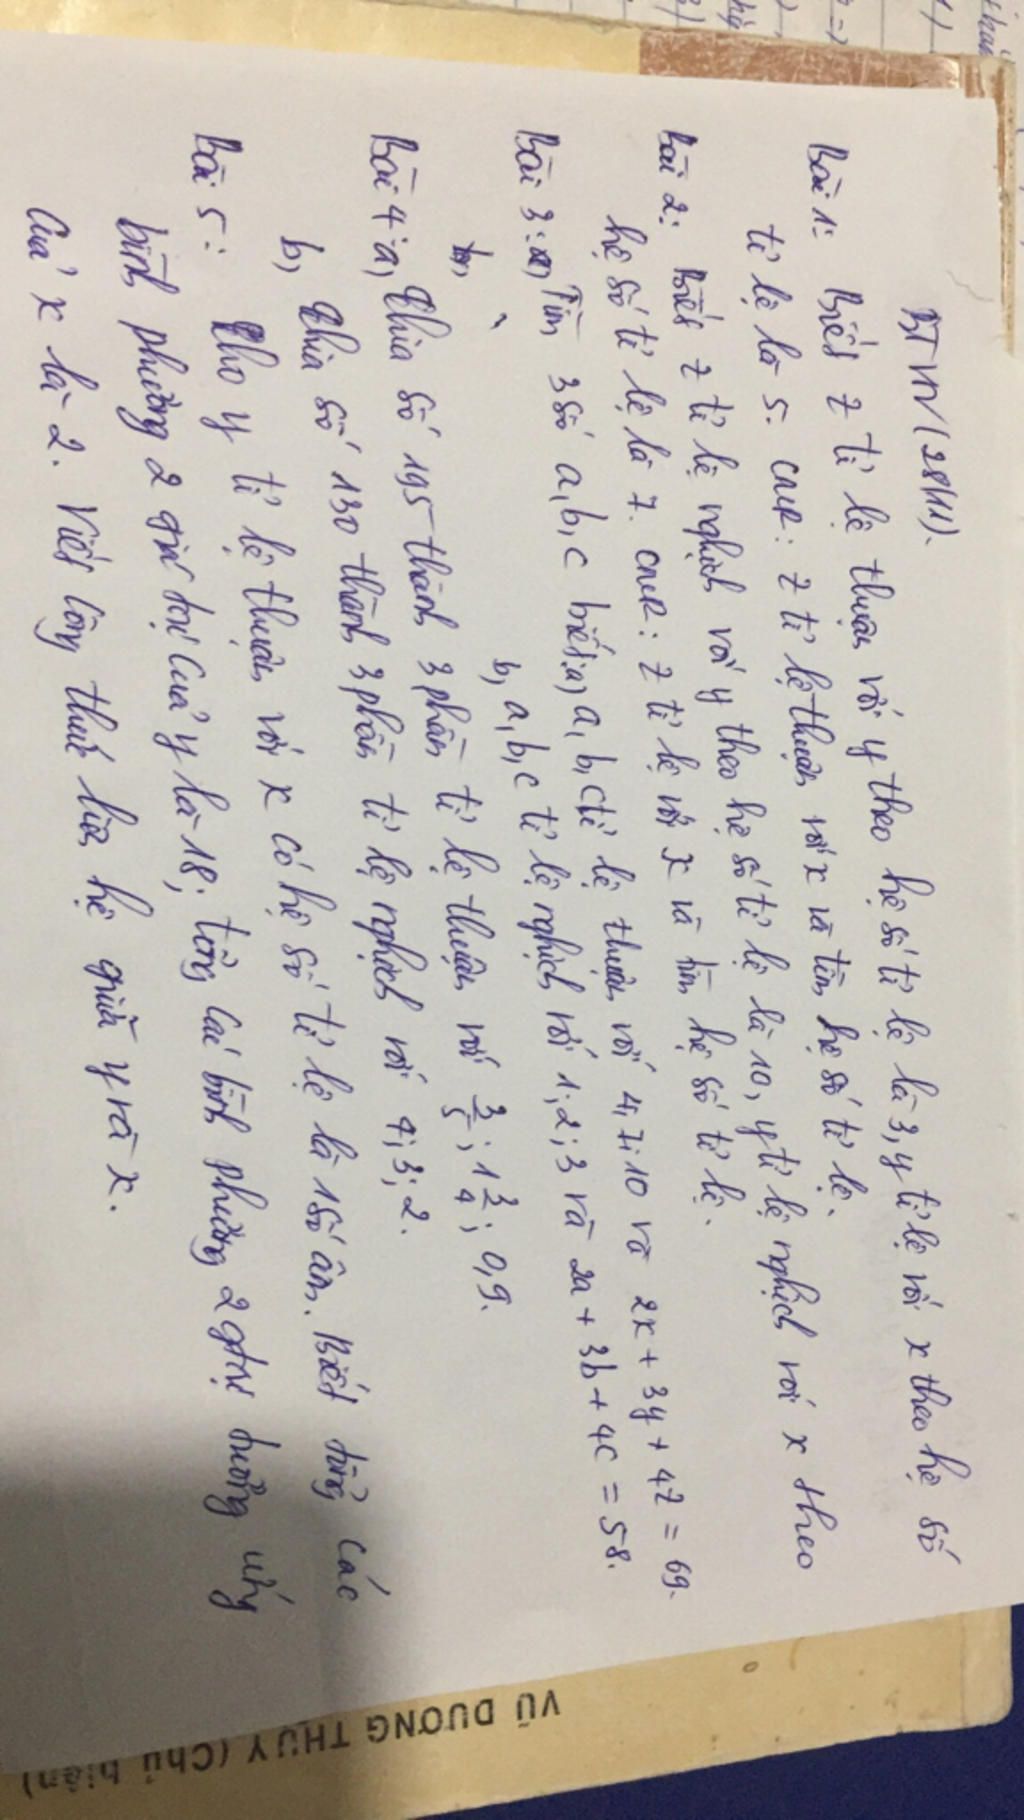 BTVN (28/11).
Bài 1: Biết z tỉ lệ thuận với y theo hệ số tỉ lệ là 3, y tỉ lệ với x theo hệ số
tỉ lệ là 5. CMR: z tỉ lệ thuận với x và tìm hệ số tỉ lệ.
Bài 2: Biết z tỉ lệ nghịch với y theo hệ số tỉ lệ là 10, y tỉ lệ nghịch với x theo
hệ số tỉ lệ là 7. CMR: z tỉ lệ với x và tìm hệ số tỉ lệ.
Bài 3: Tìm 3 số a, b, c biết: a, a, b, c tỉ lệ thuận với 4, 7, 10 và 2x + 3y + 4z = 69.
b, a, b, c tỉ lệ nghịch với 1; 2; 3 và 2a + 3b + 4c = 58.
Bài 4: a, Chia số 195 thành 3 phần tỉ lệ thuận với 3/5; 1 3/4; 0,9.
b, Chia số 130 thành 3 phần tỉ lệ nghịch với 4; 3; 2.
Bài 5: Cho y tỉ lệ thuận với x có hệ số tỉ lệ là 1 số âm. Biết tổng các
bình phương 2 gtrị của y là 18; tổng các bình phương 2 gtrị tương ứng
của x là 2. Viết công thức liên hệ giữa y và x.
VŨ DƯƠNG THỤY (Chủ biên)